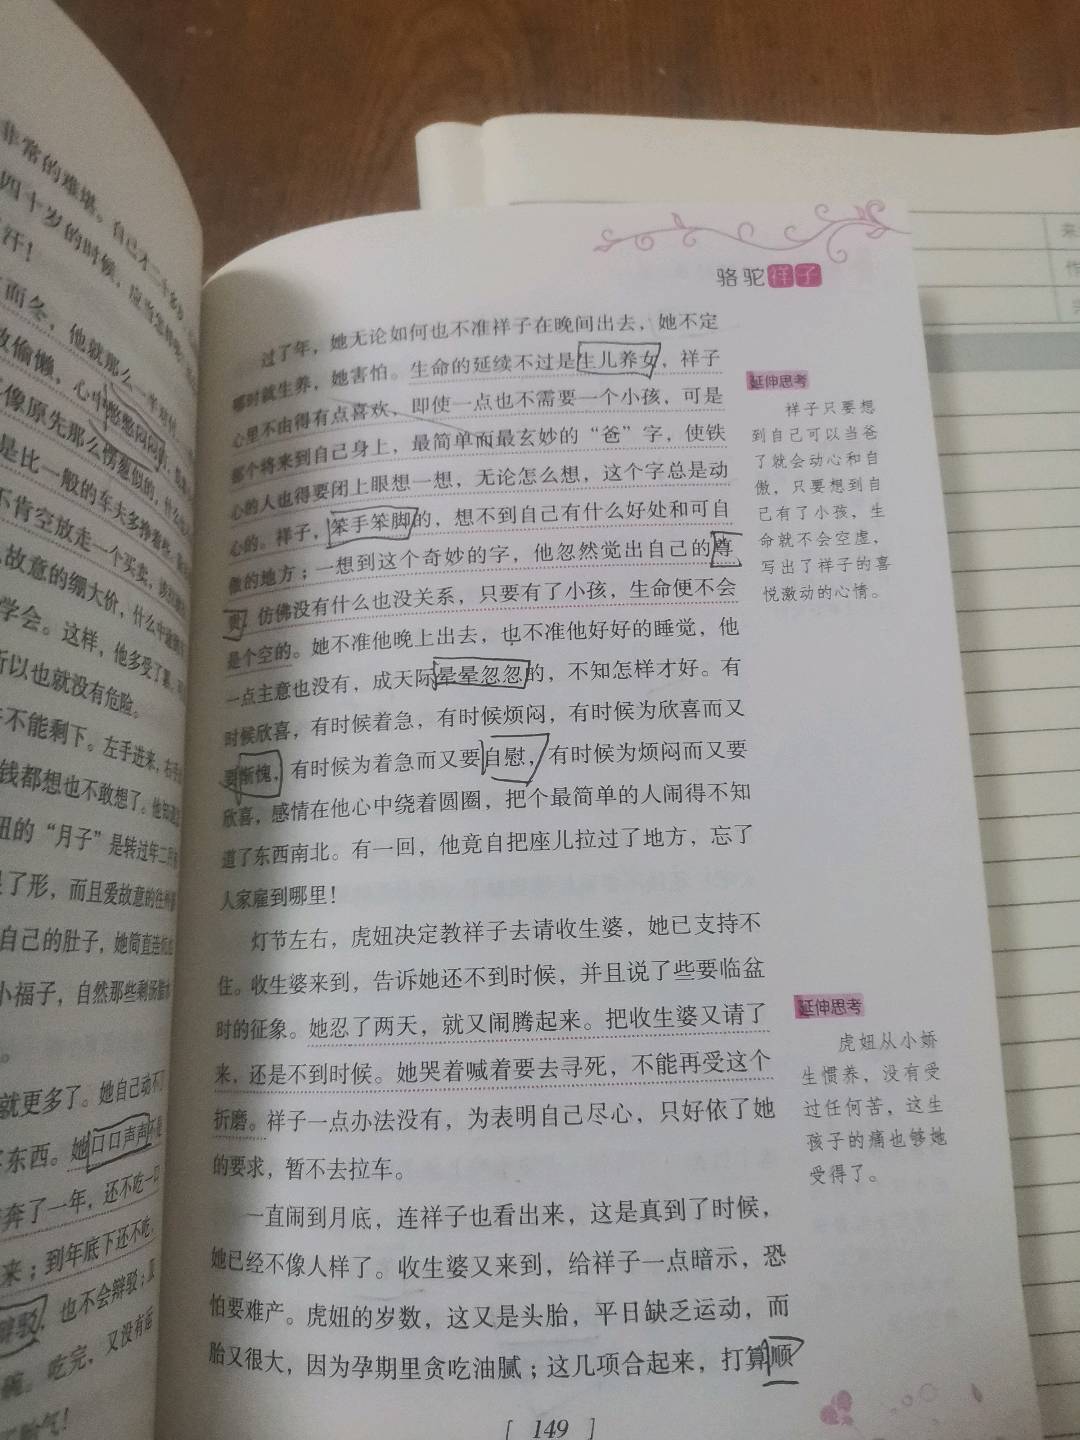 非常的难堪。自己才二十多岁
四十岁的时候，应当怎样呢
汗！
而冬，他就那么一半对付
偷懒，心中憋憋闷闷的
像原先那么愣葱似的，什么也
是比一般的车夫多挣着些
不肯空放走一个买卖，该拉就拉
故意的绷大价，什么中途倒车
学会。这样，他多受了累
所以也就没有危险。
不能剩下。左手进来，右手
钱都想也不敢想了。他知道
妞的“月子”是转过年二月
了形，而且爱故意的往外
自己的肚子，她简直连
小福子，自然那些剩汤腊水
。
就更多了。她自己动不了
东西。她口口声声
奔了一年，还不吃一口
来；到年底下还不吃，
辩驳，也不会辩驳；
碗。吃完，又没有运
骆驼祥子
过了年，她无论如何也不准祥子在晚间出去，她不定
哪时就生养，她害怕。生命的延续不过是生儿养女，祥子
心里不由得有点喜欢，即使一点也不需要一个小孩，可是
那个将来到自己身上，最简单而最玄妙的“爸”字，使铁
心的人也得要闭上眼想一想，无论怎么想，这个字总是动
心的。祥子，笨手笨脚的，想不到自己有什么好处和可自
傲的地方；一想到这个奇妙的字，他忽然觉出自己的尊
贵，仿佛没有什么也没关系，只要有了小孩，生命便不会
是个空的。她不准他晚上出去，也不准他好好的睡觉，他
一点主意也没有，成天际晕晕忽忽的，不知怎样才好。有
时候欣喜，有时候着急，有时候烦闷，有时候为欣喜而又
要惭愧，有时候为着急而又要自慰，有时候为烦闷而又要
欣喜，感情在他心中绕着圆圈，把个最简单的人闹得不知
道了东西南北。有一回，他竟自把座儿拉过了地方，忘了
人家雇到哪里！
灯节左右，虎妞决定教祥子去请收生婆，她已支持不
住。收生婆来到，告诉她还不到时候，并且说了些要临盆
时的征象。她忍了两天，就又闹腾起来。把收生婆又请了
来，还是不到时候。她哭着喊着要去寻死，不能再受这个
折磨。祥子一点办法没有，为表明自己尽心，只好依了她
的要求，暂不去拉车。
一直闹到月底，连祥子也看出来，这是真到了时候，
她已经不像人样了。收生婆又来到，给祥子一点暗示，恐
怕要难产。虎妞的岁数，这又是头胎，平日缺乏运动，而
胎又很大，因为孕期里贪吃油腻；这几项合起来，打算顺
延伸思考
祥子只要想
到自己可以当爸
了就会动心和自
傲，只要想到自
己有了小孩，生
命就不会空虚，
写出了祥子的喜
悦激动的心情。
延伸思考
虎妞从小娇
生惯养，没有受
过任何苦，这生
孩子的痛也够她
受得了。
[ 149 ]